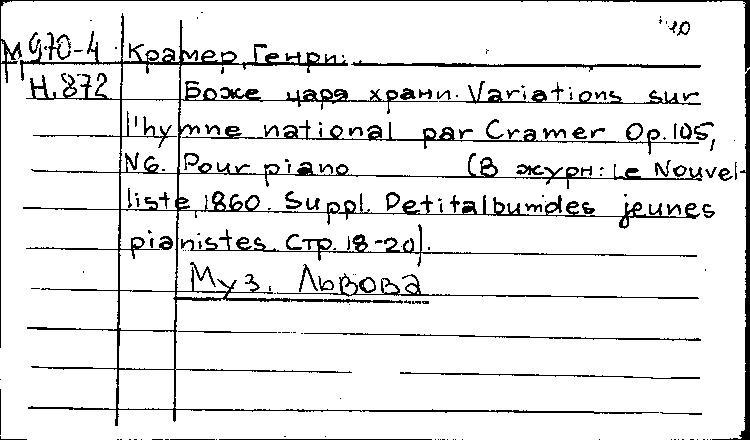 40
М 970-4 Крамер, Генри.
Н. 872 Боже царя храни. Variations sur
l'hymne national par Cramer Op. 105,
N6. Pour piano (В журн: Le Nouvel-
liste, 1860. Suppl. Petitalbumdes jeunes
pianistes. Стр. 18-20).
Муз. Львова